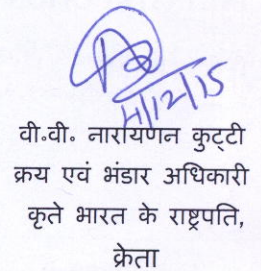 वी.वी. नारायणन कुट्टी
क्रय एवं भंडार अधिकारी
कृते भारत के राष्ट्रपति,
क्रेता